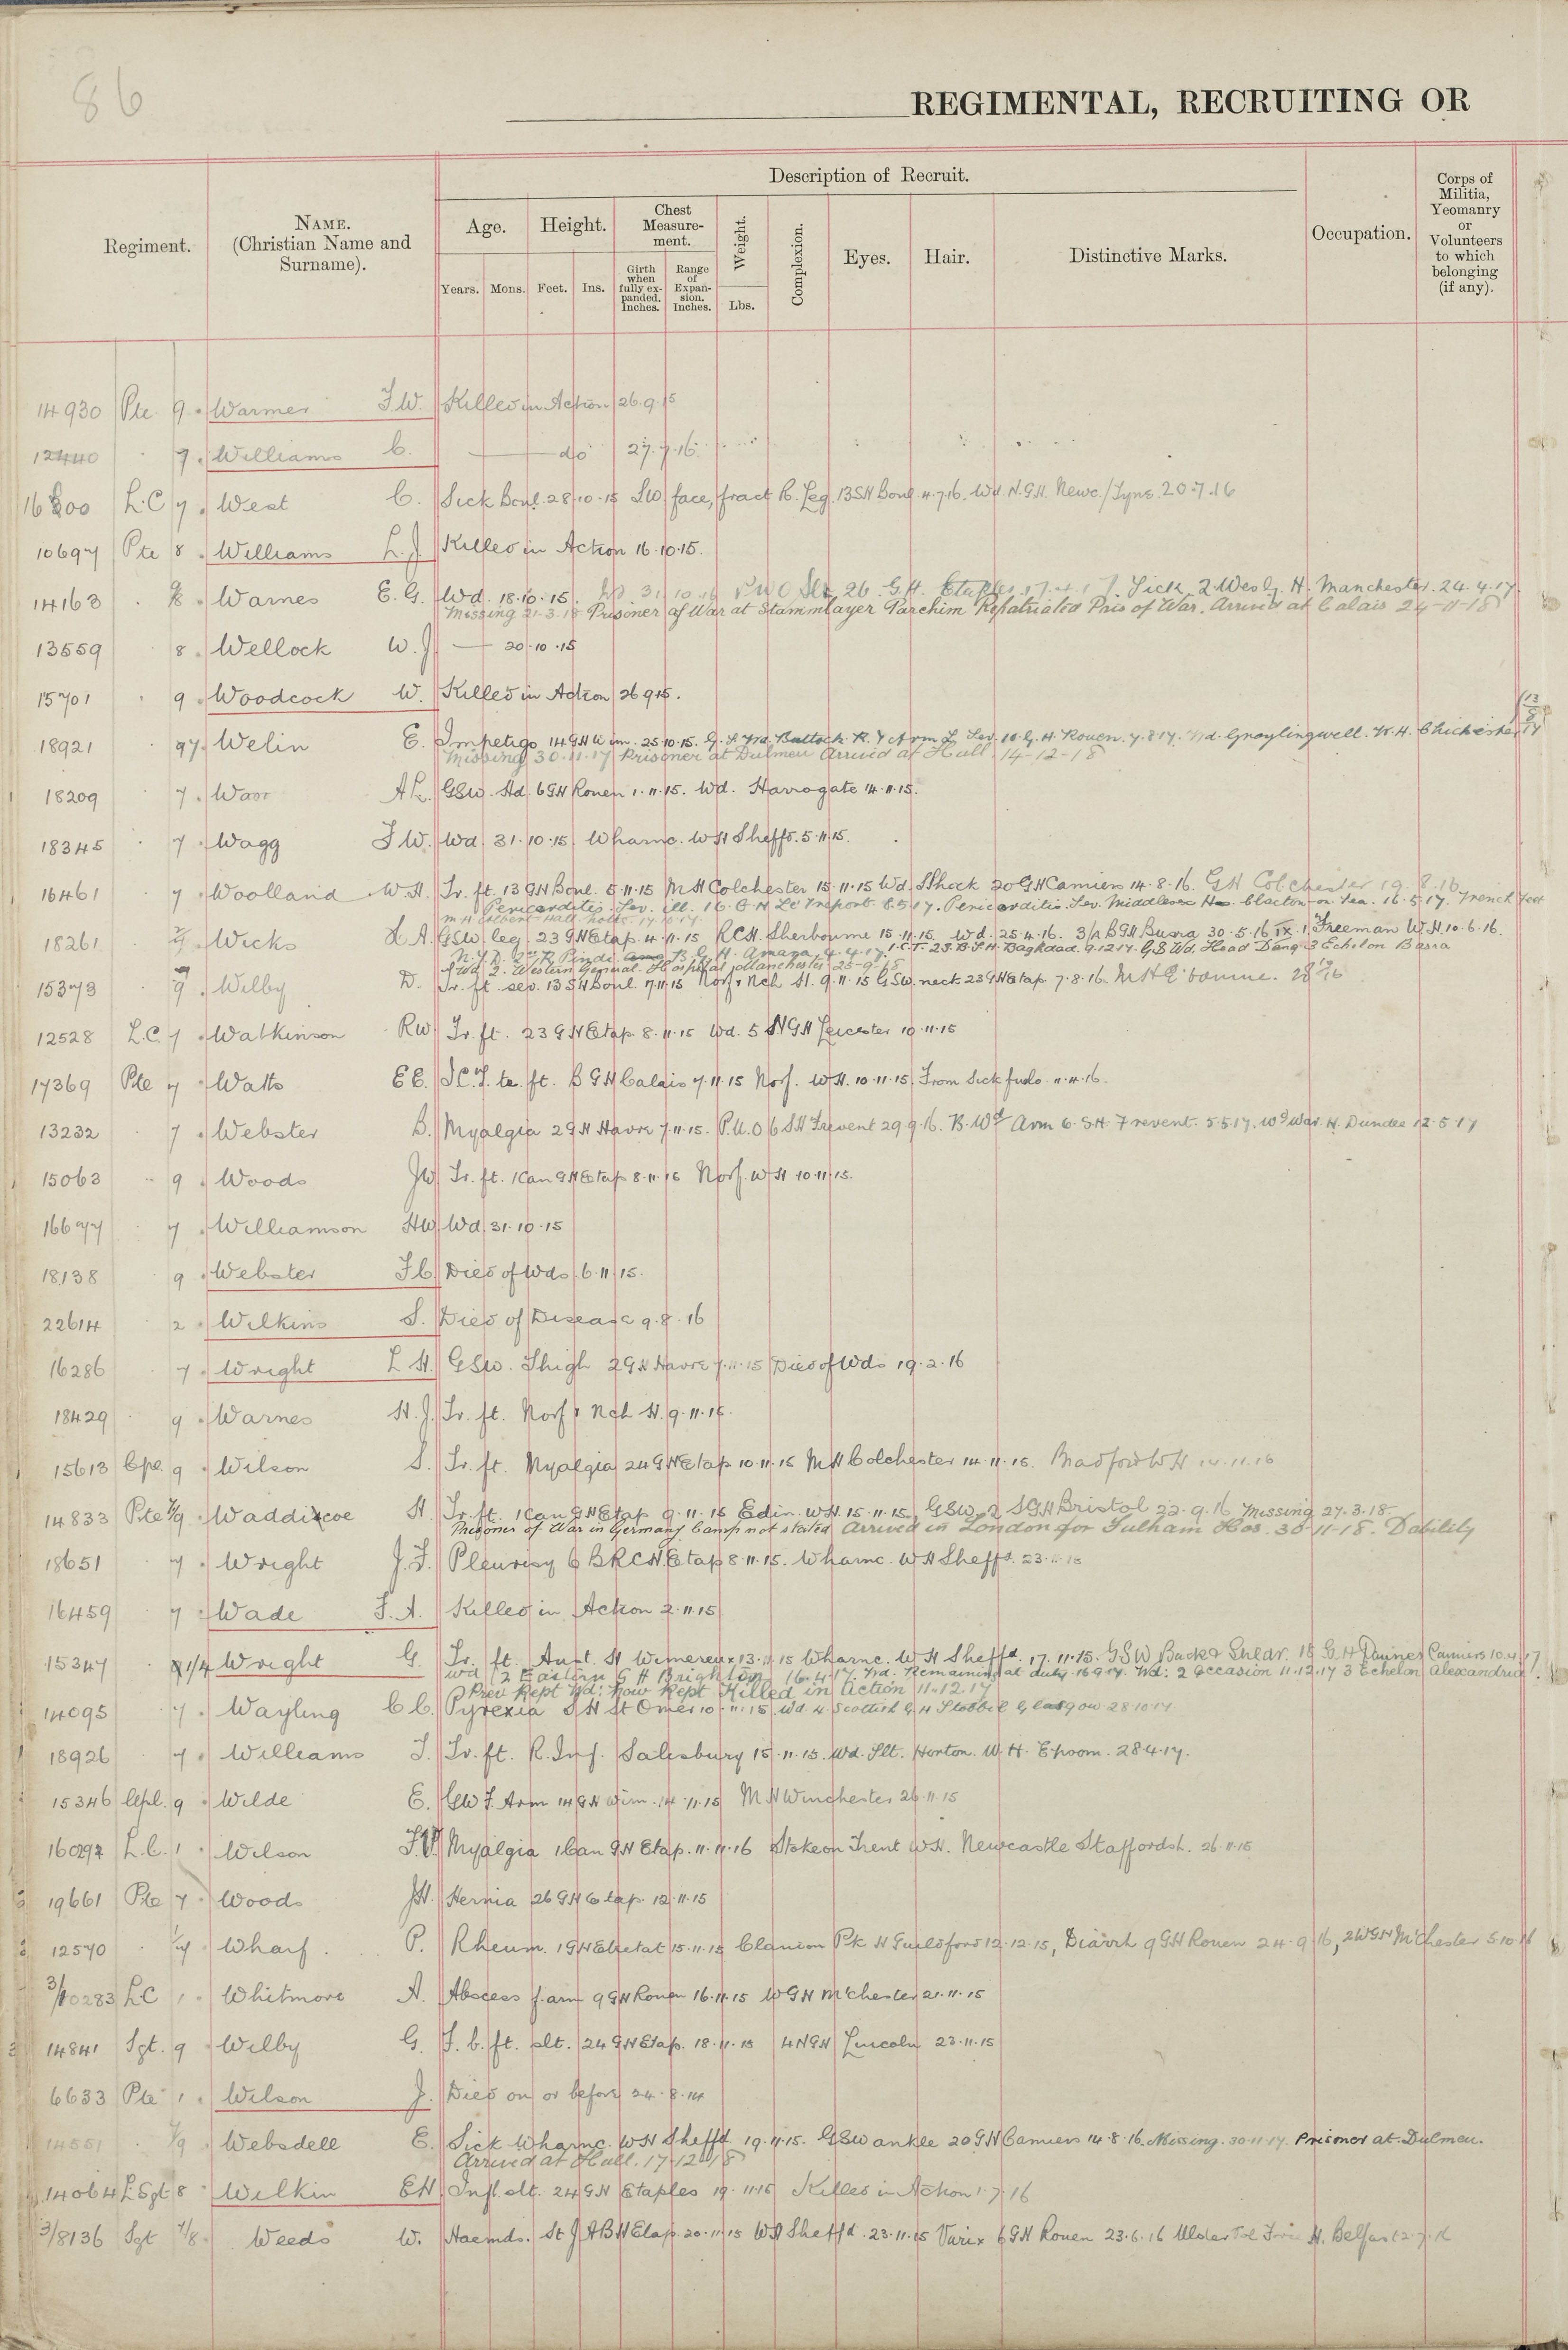 86
REGIMENTAL, RECRUITING OR
Description of Recruit.
Regiment.
NAME.
(Christian Name and
Surname).
Age.
Height.
Chest
Measure-
ment.
Weight.
Complexion.
Eyes.
Hair.
Distinctive Marks.
Occupation.
Corps of
Militia,
Yeomanry
or
Volunteers
to which
belonging
(if any).
Years.
Mons.
Feet.
Ins.
Girth
when
fully ex-
panded.
Inches.
Range
of
Expan-
sion.
Inches.
Lbs.
14930 Pte 9 Warmer F.W. Killed in Action 26.9.15
12440 7 Williams C. do 27.7.16
16200 L.C 7 West C. Sick Boul. 28.10.15 SW face, fract R. Leg. 13SH Boul. 4.7.16. Wd. N.G.H. Newc./Tyne. 20.7.16
10697 Pte 8 Williams L.J. Killed in Action 16.10.15.
14163 8 Warnes E.G. Wd. 18.10.15. 31.10.16 26 G.H. Etaples Sick 2 West G. H. Manchester. 24.4.17.
Missing 21.3.18 Prisoner of War at Stammlager Parchim Repatriated Pris of War. Arrived at Calais 24-11-18
13559 8 Wellock W.J. 20.10.15
15701 9 Woodcock W. Killed in Action 26.9.15.
18921 97 Welin E. Impetigo 14GH Wim. 25.10.15. G.S. Wd. Buttock R. & Arm L Sev. 10 G. H. Rouen. 7.8.17. Wd. Graylingwell. W. H. Chichester 13/8/17
Missing 30.11.17 Prisoner at Dulmen Arrived at Hull 14-12-18
18209 7 Warr GSW. Hd. 6GH Rouen 1.11.15. Wd. Harrogate 14.11.15.
18345 7 Wagg F.W. Wd. 31.10.15 Wharnc. WH Sheff. 5.11.15.
16461 7 Woolland W.H. Tr. ft. 13 GH Boul. 5.11.15 MH Colchester 15.11.15 Wd. Shock 20GH Camiers 14.8.16. GH Colchester 19.8.16
Pericarditis. Sev. ill. 16. G. H Le Treport 8.5.17. Pericarditis. Sev. Middlesex Hos. Clacton-on-Sea. 16.5.17. Trench Feet
18261 Wicks A. GSW leg. 23GH Etap. 4.11.15 RCH. Sherbourne 15.11.15. Wd. 25.4.16. 3/A BGH Busra 30.5.16 Freeman W.H. 10.6.16.
Pindi B. G. H. Amara 4.4.17. I.C.T. 23. B.S.H. Baghdad. 9.12.17. GS Wd. Head Dang. 3 Echelon Basra
Wd. 2. Western General. Hospital Manchester 25-9-18
15373 9 Wilby D. Tr. ft. sev. 13SH Boul. 7.11.15 Norf & Nch H. 9.11.15 GSW. neck 23GH Etap. 7.8.16. MH E'bourne.
12528 L.C. 7 Watkinson RW Tr. ft. 23GH Etap. 8.11.15 Wd. 5NGH Leicester 10.11.15
17369 Pte 7 Watts E.E. ft. B GH Calais 7.11.15 Norf. WH. 10.11.15 From Sick furlo 11.4.16.
13232 7 Webster B. Myalgia 2GH Havre 7.11.15. P.U.O 6SH Frevent 29.9.16. B. Wd Arm 6. S.H. Frevent. 5.5.17. Wd War. H. Dundee 12.5.17
15063 9 Woods JW Tr. ft. 1Can GH Etap 8.11.15 Norf. WH 10.11.15.
16677 7 Williamson HW. Wd. 31.10.15
18138 9 Webster F.C. Died of Wds. 6.11.15.
22614 2 Wilkins S. Died of Disease 9.8.16
16286 7 Wright L.H. GSW. Thigh 2GH Havre 7.11.15 Died of Wds 19.2.16
18429 9 Warnes H.J. Tr. ft. Norf & Nch H. 9.11.15.
15613 Cpl. 9 Wilson S. Tr. ft. Myalgia 24GH Etap 10.11.15 MH Colchester 14.11.15. Bradford WH 14.11.15
14833 Pte 7/9 Waddixcoe H. Tr. ft. 1Can GH Etap 9.11.15 Edin. WH 15.11.15 GSW 2 SGH Bristol 22.9.16 Missing 27.3.18
Prisoner of War in Germany Camp not stated Arrived in London for Fulham Hos. 30-11-18. Dability
18651 7 Wright J.F. Pleurisy 6 BRCH Etap 8.11.15. Wharnc. WH Sheff. 23.11.15
16459 7 Wade F.A. Killed in Action 2.11.15
15347 1/4 Wright G. Tr. ft. Aust. H Wimereux 13.11.15 Wharnc. WH Sheffd. 17.11.15. GSW Back & Shldr. 18 G.H Dannes Camiers 10.4.17
Wd 2 Eastern G H Brighton 16.4.17. Wd. Remaining at duty. 16.9.17. Wd. 2 occasion 11.12.17 3 Echelon Alexandria
Prev Rept Wd: now Rept Killed in Action 11.12.17
14095 7 Wayling C.C. Pyrexia SH St Omer 10.11.15. Wd. 4. Scottish G H Stobhill Glasgow 28.10.17
18926 7 Williams J. Tr. ft. R. Inf. Salisbury 15.11.15. Wd. Slt. Horton. W.H. Epsom. 28.4.17.
15346 Cpl. 9 Wilde E. GSW F. Arm 14GH Wim. 14.11.15 MH Winchester 26.11.15
L.C. 1 Wilson F.V. Myalgia 1Can GH Etap. 11.11.15 Stoke on Trent WH. Newcastle Staffordsh. 26.11.15
19661 Pte 7 Woods JH. Hernia 26GH Etap. 12.11.15
12570 1/7 Wharf. P. Rheum. 1GH Etretat 15.11.15 Clandon Pk H Guildford 12.12.15, Diarrh 9GH Rouen 24.9.16, 2WGH M'Chester 5.10.16
3/10283 LC 1 Whitmore A. Abscess f.arm 9GH Rouen 16.11.15 WGH M'chester 21.11.15
14841 Sgt. 9 Wilby G. slt. 24GH Etap. 18.11.15 4NGH Lincoln 23.11.15
6633 Pte 1 Wilson J. Died on or before 24.8.14
14551 7/9 Websdell E. Sick Wharnc. WH Sheffd. 19.11.15. GSW ankle 20GH Camiers 14.8.16. Missing. 30.11.17. Prisoner at Dulmen.
Arrived at Hull. 17-12-18
14064 L Sgt 8 Wilkin EH Infl. slt. 24GH Etaples 19.11.15 Killed in Action 1.7.16
3/8136 Sgt 7/8 Weeds W. Haemds. St J ABH Etap. 20.11.15 WH Sheffd. 23.11.15 Varix 6GH Rouen 23.6.16 Ulster Vol Force H. Belfast 2.7.16